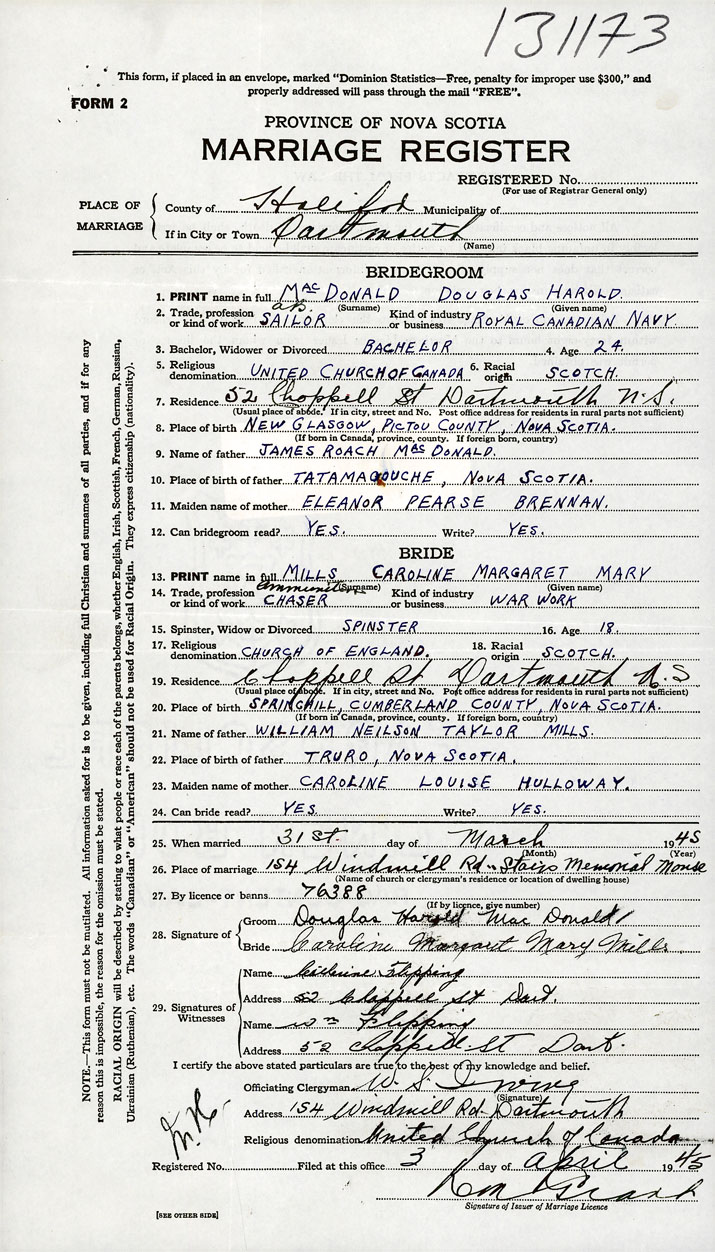 131173
This form, if placed in an envelope, marked "Dominion Statistics—Free, penalty for improper use $300," and
properly addressed will pass through the mail "FREE".
FORM 2
PROVINCE OF NOVA SCOTIA
MARRIAGE REGISTER
REGISTERED No.
(For use of Registrar General only)
PLACE OF MARRIAGE
County of Halifax Municipality of
If in City or Town Dartmouth
(Name)
BRIDEGROOM
1. PRINT name in full MacDONALD DOUGLAS HAROLD.
(Surname) (Given name)
2. Trade, profession or kind of work A.B. SAILOR Kind of industry or business ROYAL CANADIAN NAVY.
3. Bachelor, Widower or Divorced BACHELOR 4. Age 24.
5. Religious denomination UNITED CHURCH OF CANADA 6. Racial origin SCOTCH.
7. Residence 52 Chappell St Dartmouth N.S.
(Usual place of abode. If in city, street and No. Post office address for residents in rural parts not sufficient)
8. Place of birth NEW GLASGOW, PICTOU COUNTY, NOVA SCOTIA.
(If born in Canada, province, county. If foreign born, country)
9. Name of father JAMES ROACH MacDONALD.
10. Place of birth of father TATAMAGOUCHE, NOVA SCOTIA.
11. Maiden name of mother ELEANOR PEARSE BRENNAN.
12. Can bridegroom read? YES. Write? YES.
BRIDE
13. PRINT name in full MILLS CAROLINE MARGARET MARY
(Surname) (Given name)
14. Trade, profession or kind of work ammunition CHASER Kind of industry or business WAR WORK
15. Spinster, Widow or Divorced SPINSTER 16. Age 18.
17. Religious denomination CHURCH OF ENGLAND. 18. Racial origin SCOTCH.
19. Residence Chappell St Dartmouth N.S
(Usual place of abode. If in city, street and No. Post office address for residents in rural parts not sufficient)
20. Place of birth SPRINGHILL, CUMBERLAND COUNTY, NOVA SCOTIA.
(If born in Canada, province, county. If foreign born, country)
21. Name of father WILLIAM NEILSON TAYLOR MILLS.
22. Place of birth of father TRURO, NOVA SCOTIA.
23. Maiden name of mother CAROLINE LOUISE HULLOWAY.
24. Can bride read? YES. Write? YES.
25. When married 31st. day of March 1945
(Month) (Year)
26. Place of marriage 154 Windmill Rd - Stairs Memorial Manse
(Name of church or clergyman's residence or location of dwelling house)
27. By licence or banns 76388
(If by licence, give number)
28. Signature of
Groom Douglas Harold MacDonald
Bride Caroline Margaret Mary Mills
29. Signatures of Witnesses
Name Catherine Flipping
Address 52 Chappell St Dart.
Name Wm Flipping
Address 52 Chappell St Dart.
I certify the above stated particulars are true to the best of my knowledge and belief.
Officiating Clergyman W. S. Irving
(Signature)
Address 154 Windmill Rd. Dartmouth
Religious denomination United Church of Canada
Registered No. Filed at this office 3 day of April 1945
Signature of Issuer of Marriage Licence
[SEE OTHER SIDE]
NOTE.—This form must not be mutilated. All information asked for is to be given, including full Christian and surnames of all parties, and if for any
reason this is impossible, the reason for the omission must be stated.
RACIAL ORIGIN will be described by stating to what people or race each of the parents belongs, whether English, Irish, Scottish, French, German, Russian,
Ukrainian (Ruthenian), etc. The words "Canadian" or "American" should not be used for Racial Origin. They express citizenship (nationality).